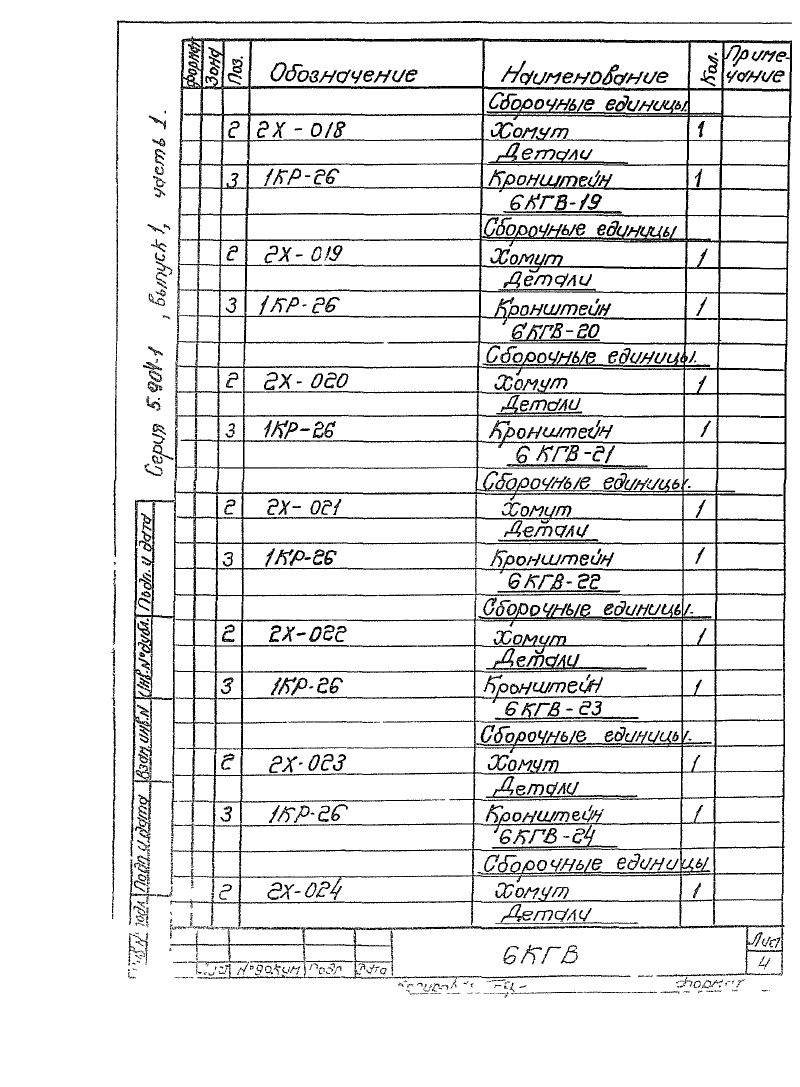 Серия 5.904-1 , выпуск 1, часть 1.
Форма Зона Поз. Обозначение Наименование Кол. Приме-
чание
Сборочные единицы
2 2Х-018 Хомут 1
Детали
3 1КР-26 Кронштейн 1
6КГВ-19
Сборочные единицы
2 2Х-019 Хомут 1
Детали
3 1КР-26 Кронштейн 1
6КГВ-20
Сборочные единицы.
2 2Х-020 Хомут 1
Детали
3 1КР-26 Кронштейн 1
6 КГВ-21
Сборочные единицы.
2 2Х-021 Хомут 1
Детали
3 1КР-26 Кронштейн 1
6КГВ-22
Сборочные единицы.
2 2Х-022 Хомут 1
Детали
3 1КР-26 Кронштейн 1
6КГВ-23
Сборочные единицы.
2 2Х-023 Хомут 1
Детали
3 1КР-26 Кронштейн 1
6КГВ-24
Сборочные единицы
2 2Х-024 Хомут 1
Детали
Подп. и дата
Инв.№дубл.
Взам.инв.№
Подп. и дата
Инв.№ подл.
Лист №докум Подп. Дата
6КГВ
Лист
4
Копировал Формат